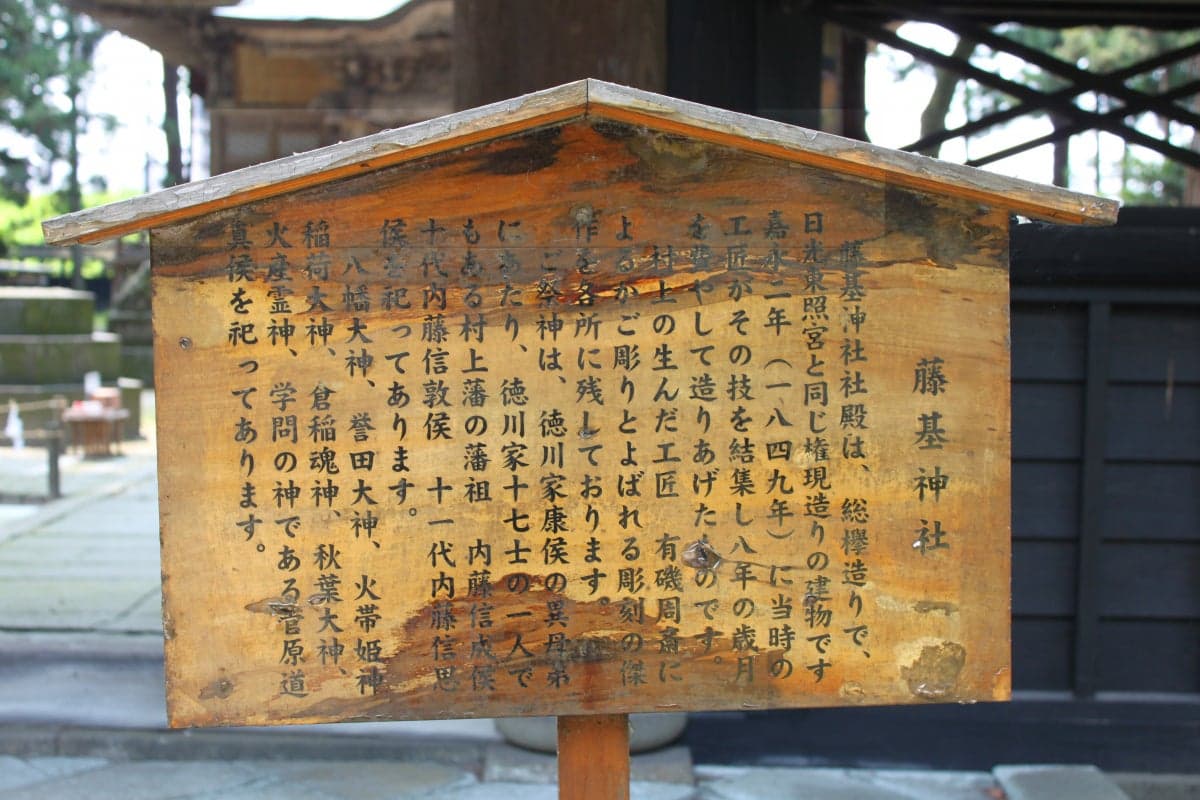 藤基神社
藤基神社社殿は、総欅造りで、
日光東照宮と同じ権現造りの建物です
嘉永二年(一八四九年)に当時の
工匠がその技を結集し八年の歳月
を費やして造りあげたものです。
村上の生んだ工匠 有磯周斎に
よるかご彫りとよばれる彫刻の傑
作を各所に残しております。
ご祭神は、徳川家康侯の異母弟
にあたり、徳川家十七士の一人で
もある村上藩の藩祖 内藤信成侯
十代内藤信敦侯 十一代内藤信思
侯を祀ってあります。
八幡大神、誉田大神、火帯姫神
稲荷大神、倉稲魂神、秋葉大神、
火産霊神、学問の神である菅原道
真侯を祀ってあります。